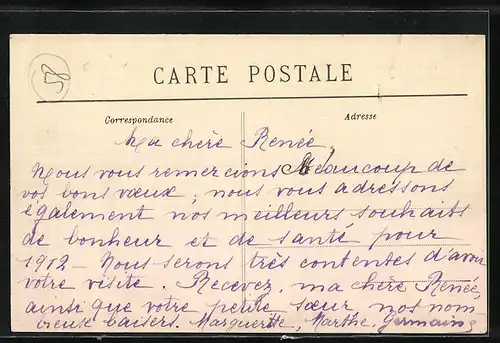 58
CARTE POSTALE
Correspondance
Adresse
Ma chère Renée.
Nous vous remercions Beaucoup de
vos bons vœux, nous vous adressons
également nos meilleurs souhaits
de bonheur et de santé pour
1912 - Nous serons très contentes d'avoir
votre visite. Recevez, ma chère Renée,
ainsi que votre petite sœur, nos nom
breux baisers. Marguerite, Marthe, Germaine